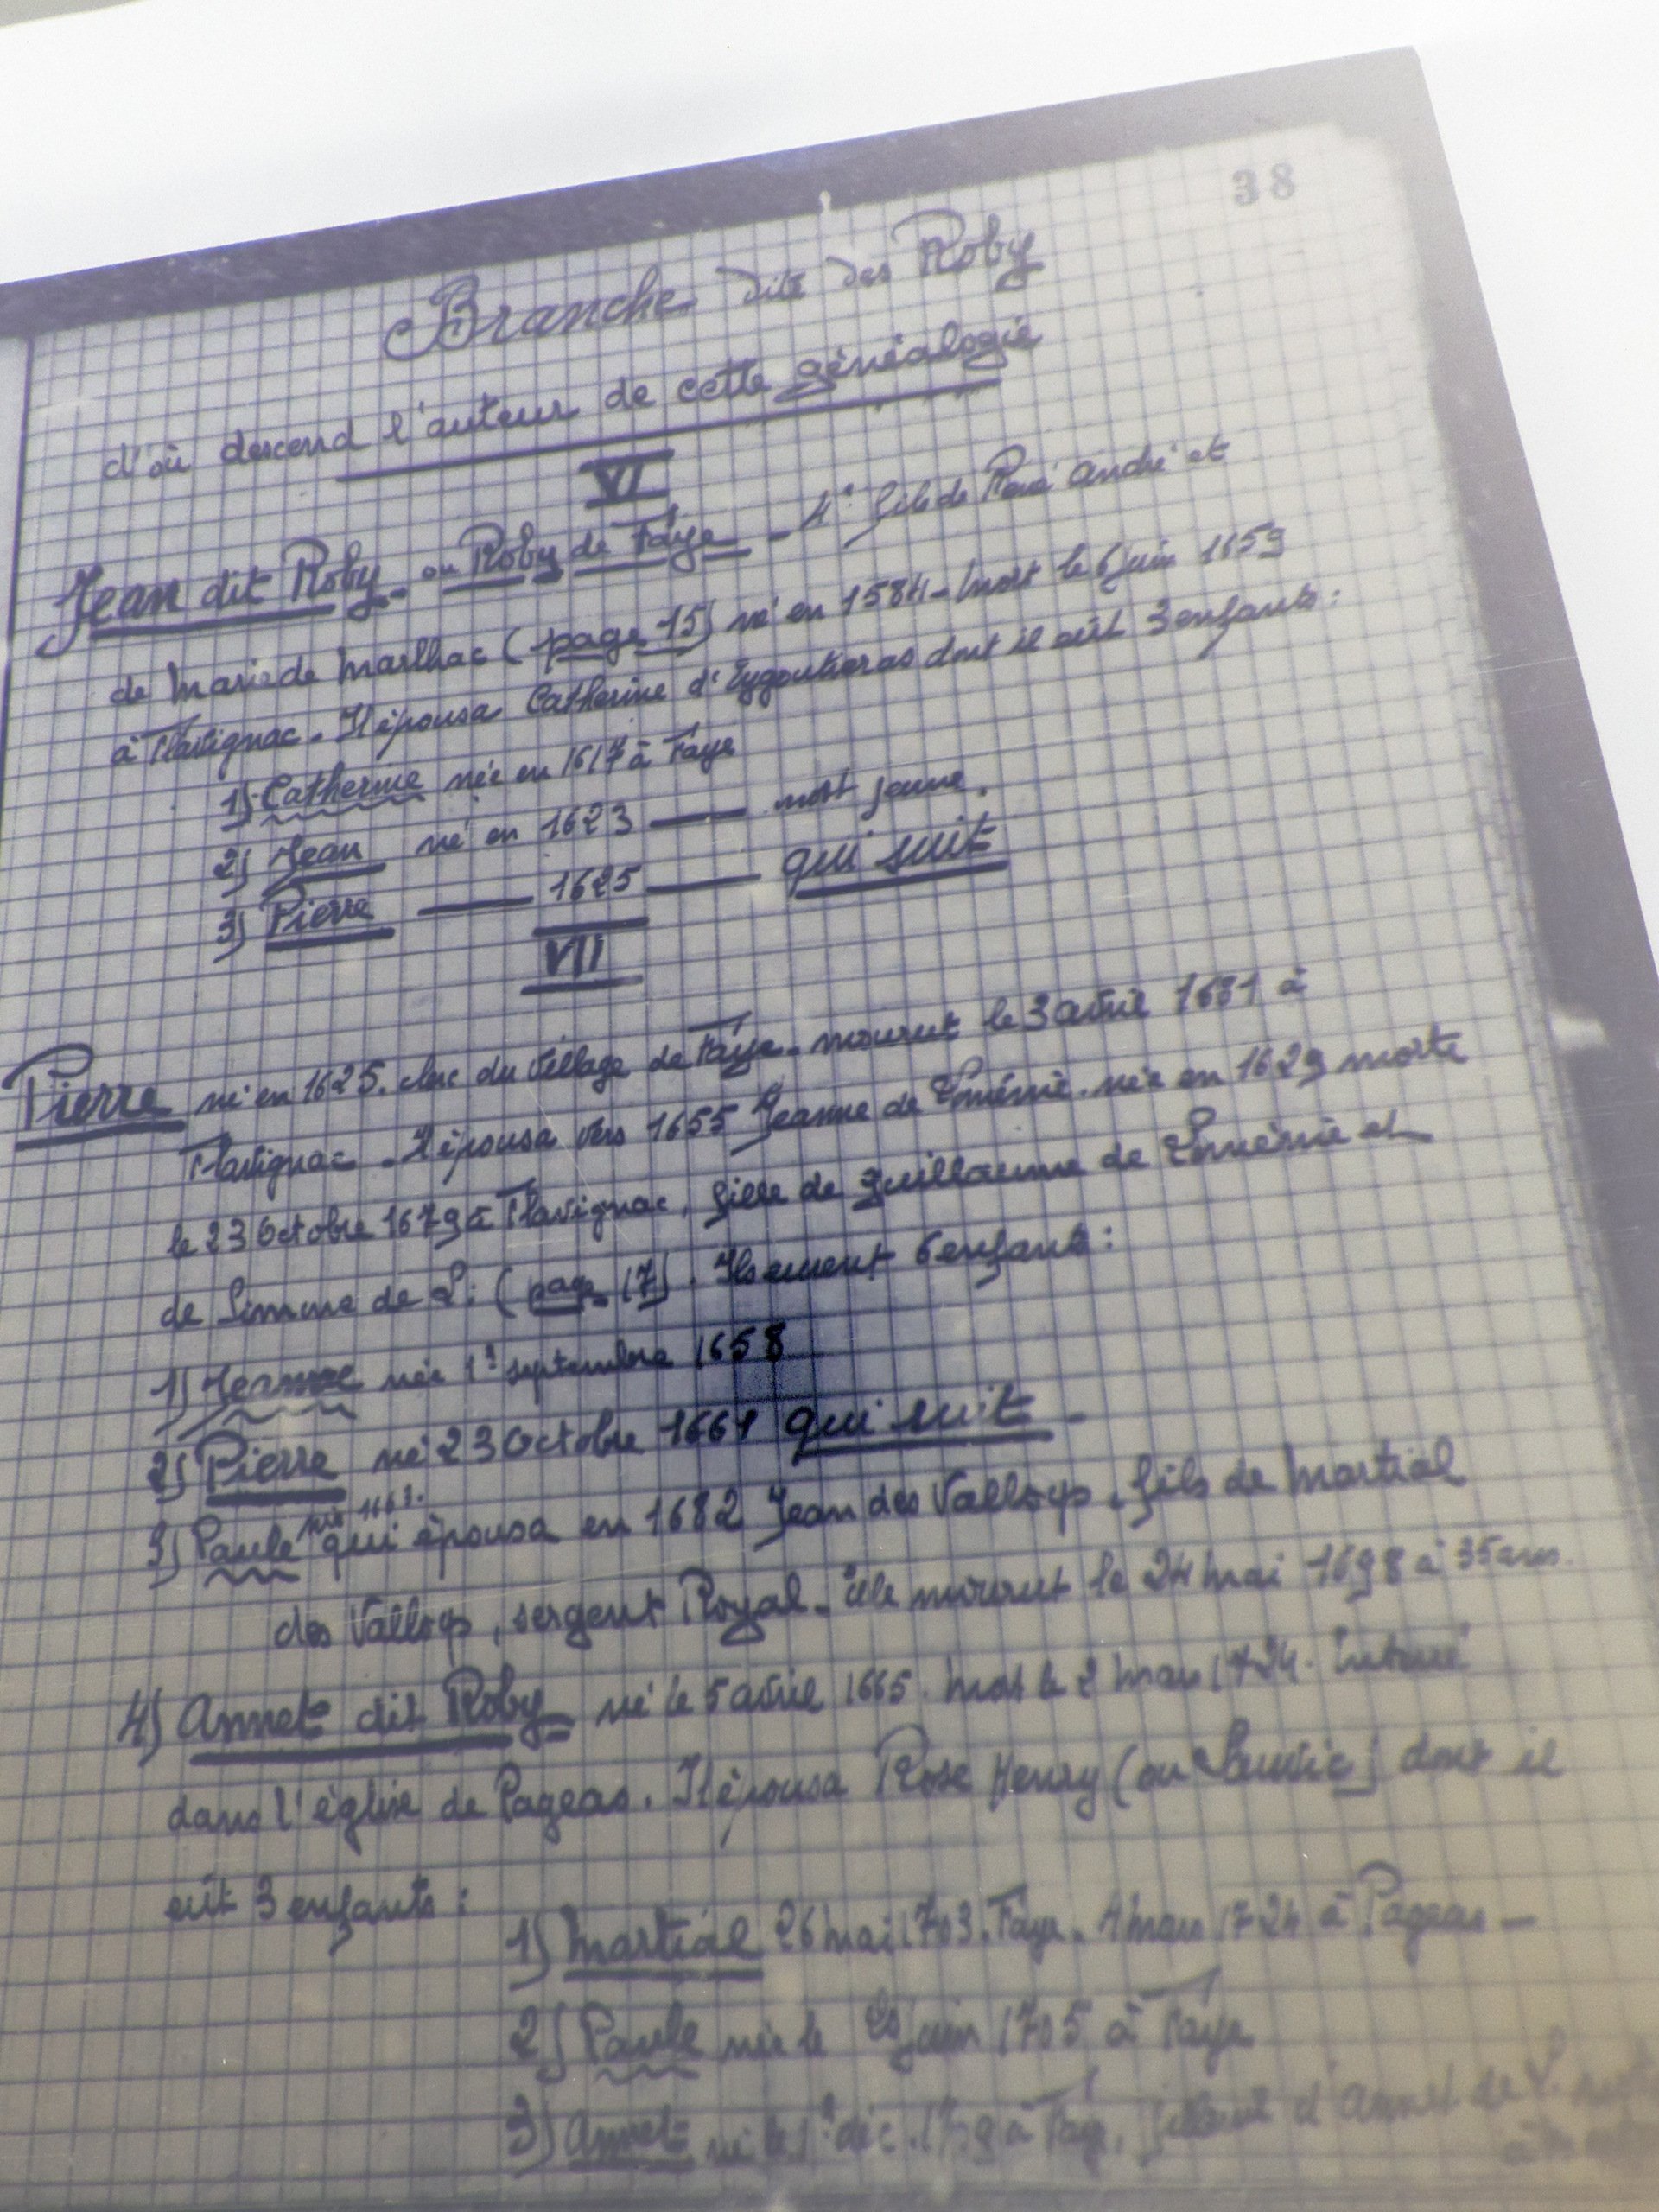 38
Branche dite des Roby
d'où descend l'auteur de cette généalogie
VI
Jean dit Roby ou Roby de Faye - 4e fils de René André et
de Marie de Marlhac (page 15) né en 1584 - Mort le 6 juin 1659
à Flavignac. Il épousa Catherine d'Eygoutieras dont il eût 3 enfants :
1) Catherine née en 1617 à Faye
2) Jean né en 1623 — mort jeune.
3) Pierre — 1625 — qui suit
VII
Pierre né en 1625. clerc du village de Faye. mourut le 3 avril 1681 à
Flavignac. Il épousa vers 1655 Jeanne de Loménie. née en 1629 morte
le 23 Octobre 1679 à Flavignac, fille de Guillaume de Loménie et
de Simme de L: (page 17). Ils eurent 6 enfants :
1) Jeanne née 1er septembre 1658
2) Pierre né 23 Octobre 1661 qui suit -
née 1663.
3) Paule qui épousa en 1682 Jean des Valloys, fils de Martial
des Valloys, sergent Royal. Elle mourut le 24 Mai 1698 à 35 ans.
4) Annet dit Roby né le 5 avril 1665. Mort le 2 Mars 1724. Inhumé
dans l'église de Pageas. Il épousa Rose Henry (ou ) dont il
eût 3 enfants :
1) Martial 26 Mai 1703. Faye. 4 Mars 1724 à Pageas -
2) Paule née le juin 1705 à Faye
3) Annet né le 1er déc. 1709 à Faye, filleul d'Annet de L.